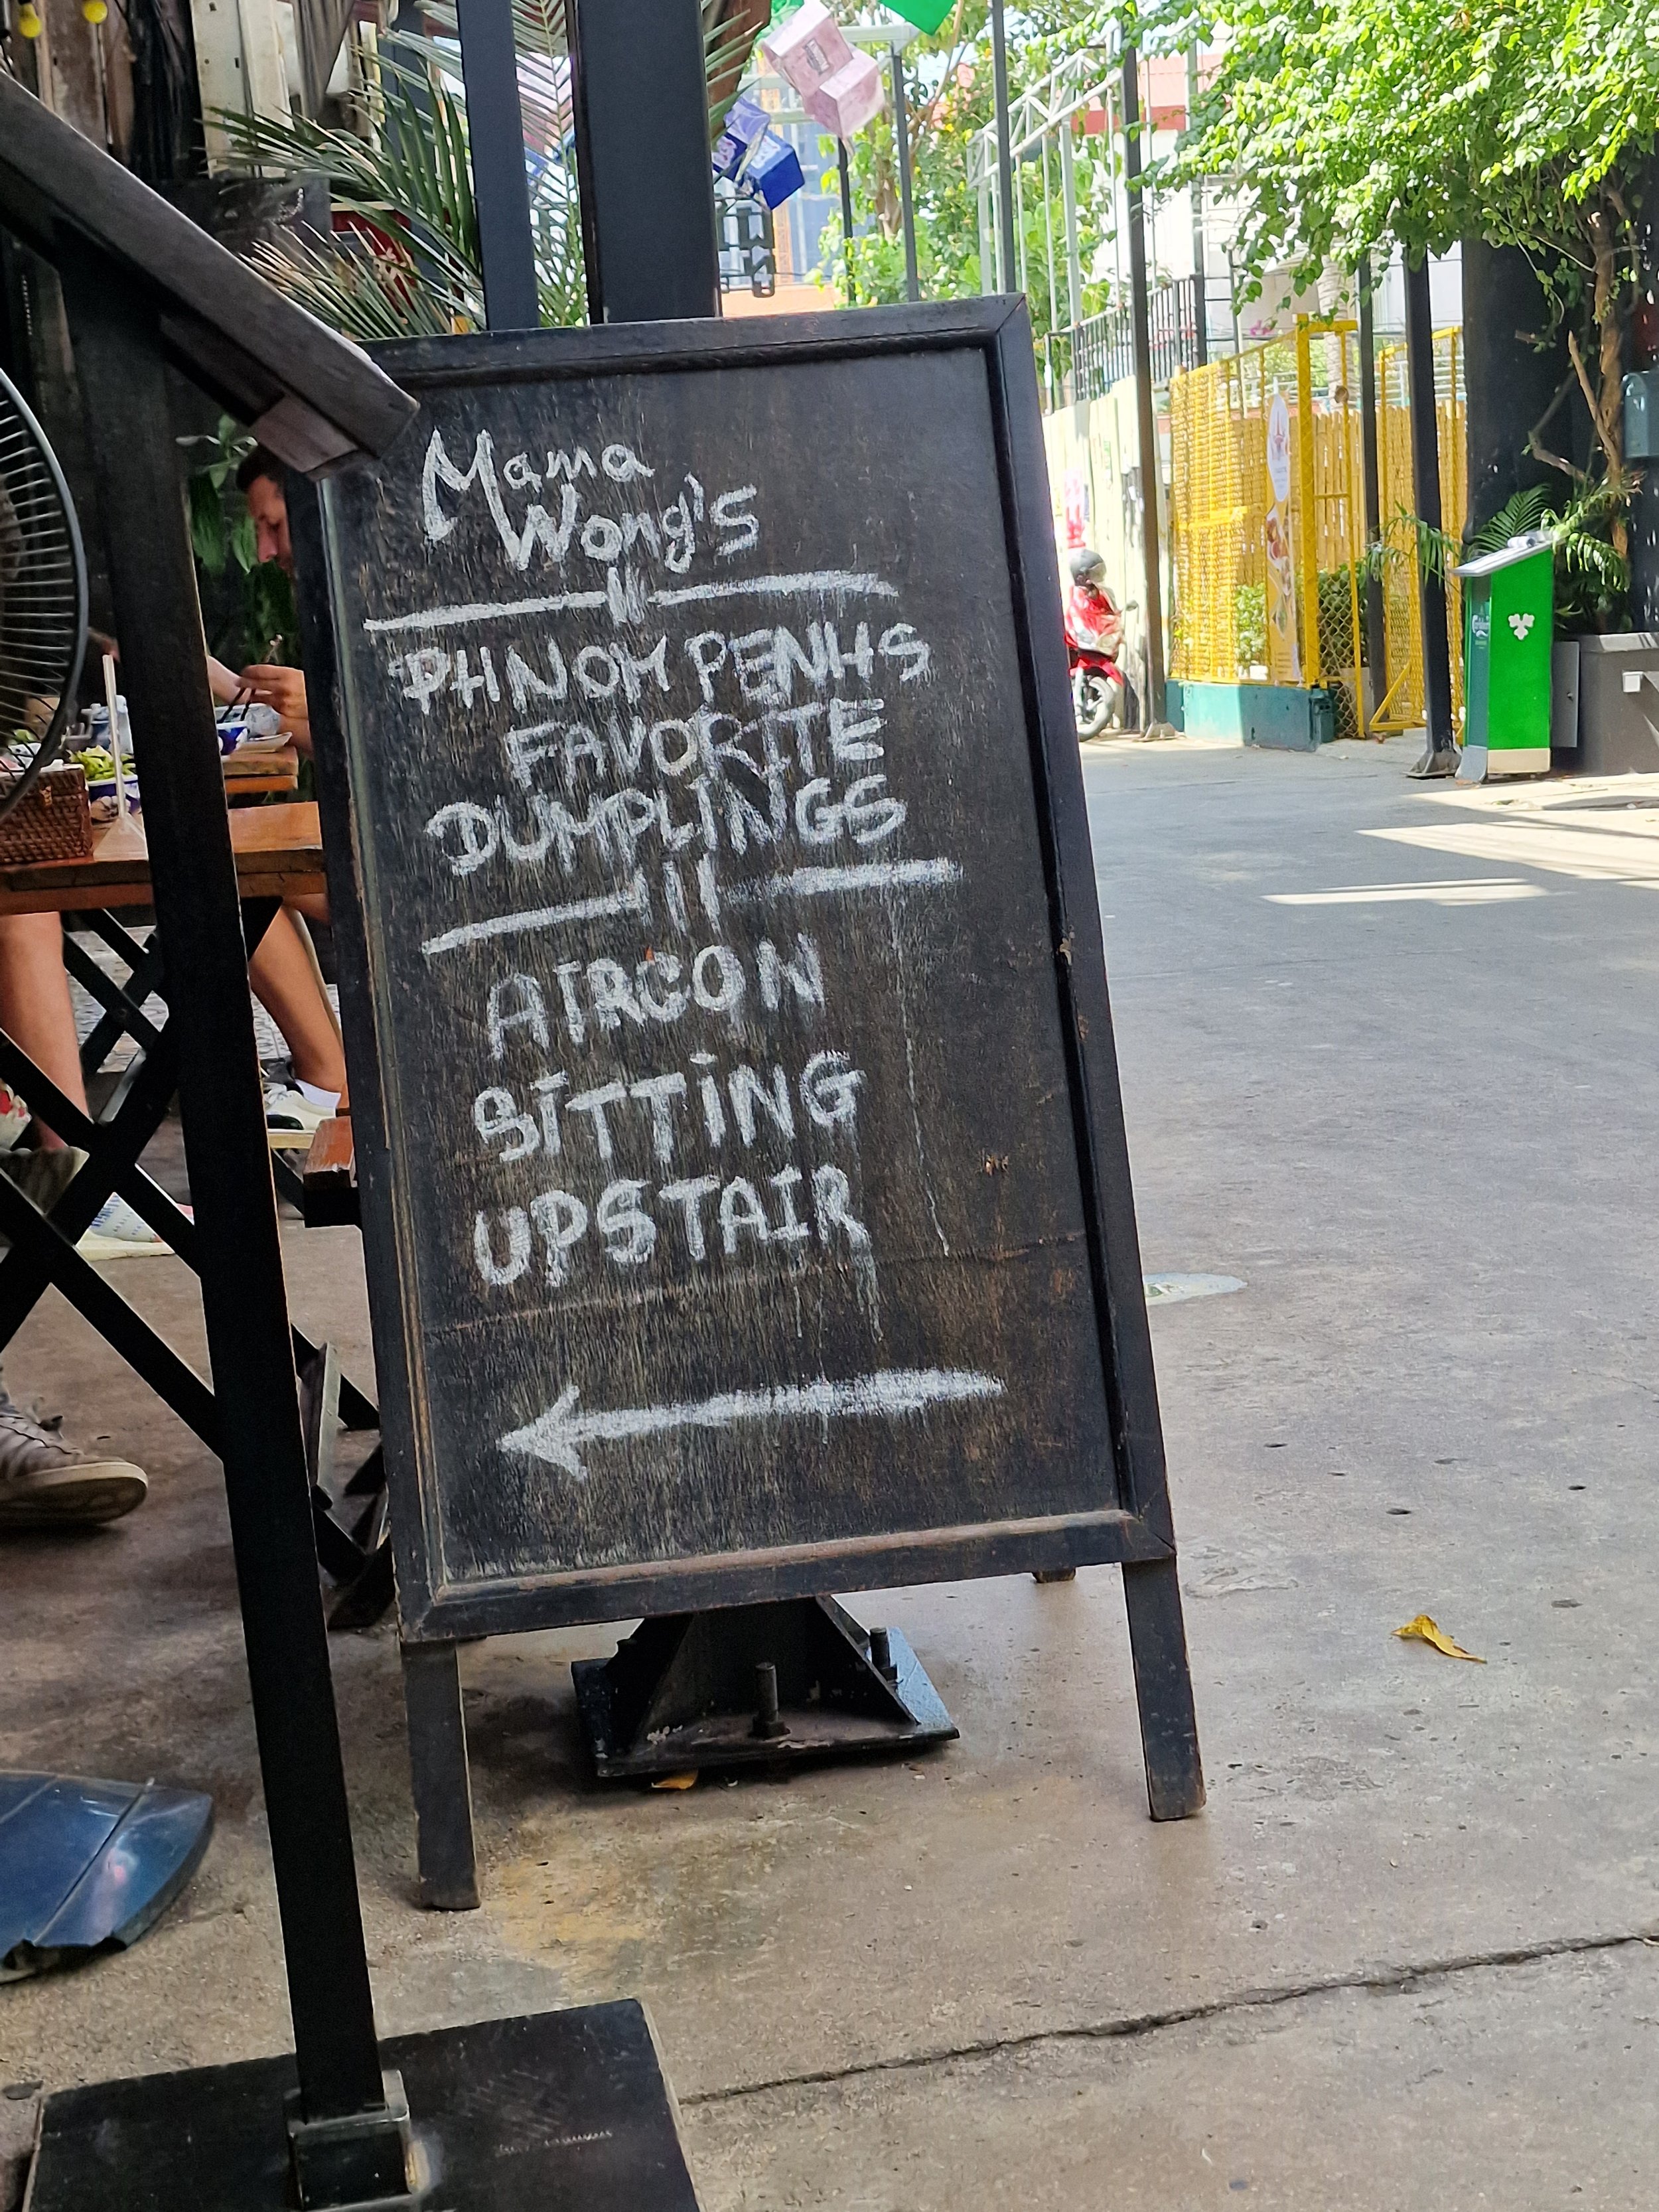 Mama
Wong's
PHNOM PENHS
FAVORITE
DUMPLINGS
AIRCON
SITTING
UPSTAIR